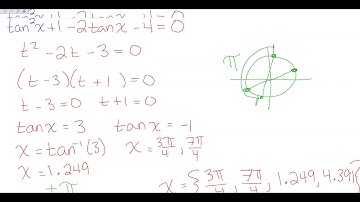 tan²x+1-2tanx-4=0
t²-2t-3=0
(t-3)(t+1)=0
t-3=0 t+1=0
tanx=3 tanx=-1
x=tan⁻¹(3) x=3π/4, 7π/4
x=1.249
+π
π
x={3π/4, 7π/4, 1.249, 4.391